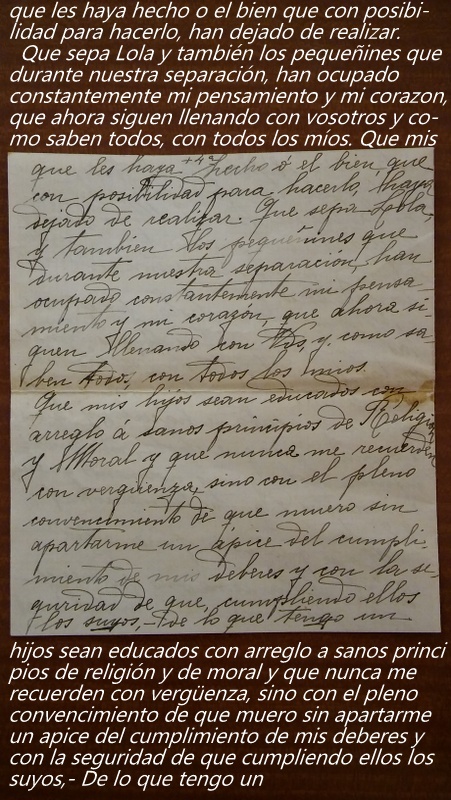 que les haya hecho o el bien que con posibi-
lidad para hacerlo, han dejado de realizar.
Que sepa Lola y también los pequeñines que
durante nuestra separación, han ocupado
constantemente mi pensamiento y mi corazon,
que ahora siguen llenando con vosotros y co-
mo saben todos, con todos los míos. Que mis
que les haya +4ª hecho ó el bien que
con posibilidad para hacerlo, haya
dejado de realizar. Que sepa Lola,
y tambien los pequeñines que
durante nuestra separación, han
ocupado constantemente mi pensa-
miento y mi corazon, que ahora si-
guen llenando con Vds, y, como sa-
ben todos, con todos los mios.
Que mis hijos sean educados con
arreglo á sanos principios de Religion
y Moral y que nunca me recuerden
con vergüenza, sino con el pleno
convencimiento de que muero sin
apartarme un ápice del cumpli-
miento de mis deberes y con la se-
guridad de que, cumpliendo ellos
los suyos,- De lo que tengo un
hijos sean educados con arreglo a sanos princi
pios de religión y de moral y que nunca me
recuerden con vergüenza, sino con el pleno
convencimiento de que muero sin apartarme
un apice del cumplimiento de mis deberes y
con la seguridad de que cumpliendo ellos los
suyos,- De lo que tengo un